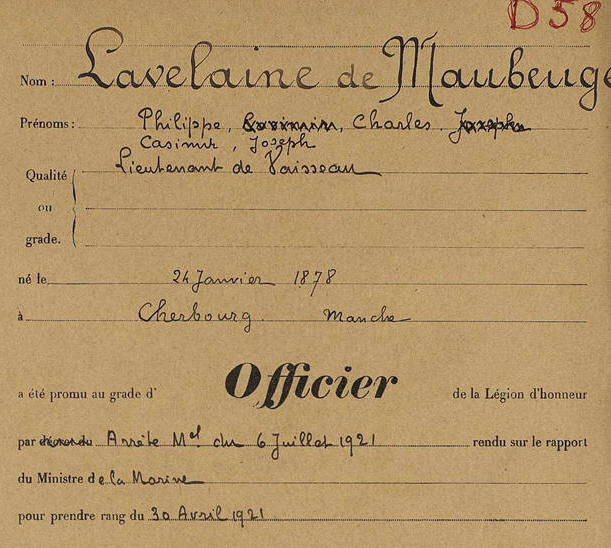 D 58
Nom : Lavelaine de Maubeuge
Prénoms : Philippe, Casimir, Charles, Joseph
Casimir, Joseph
Qualité Lieutenant de Vaisseau
ou
grade.
né le 24 Janvier 1878
à Cherbourg. Manche
a été promu au grade d' Officier de la Légion d'honneur
par décret du Arrête Mel du 6 Juillet 1921 rendu sur le rapport
du Ministre de la Marine
pour prendre rang du 30 Avril 1921